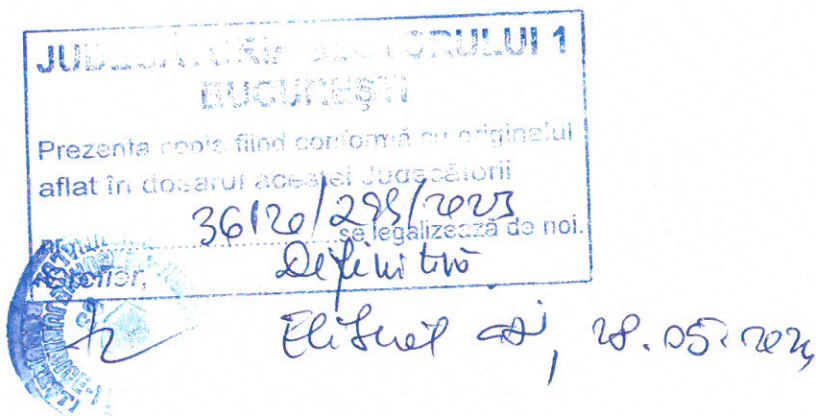 JUDECĂTORIA SECTORULUI 1
BUCUREȘTI
Prezenta copie fiind conformă cu originalul
aflat în dosarul acestei Judecătorii
se legalizează de noi.
Grefier,
Definitivă
Eliberat azi, 28.05.2024